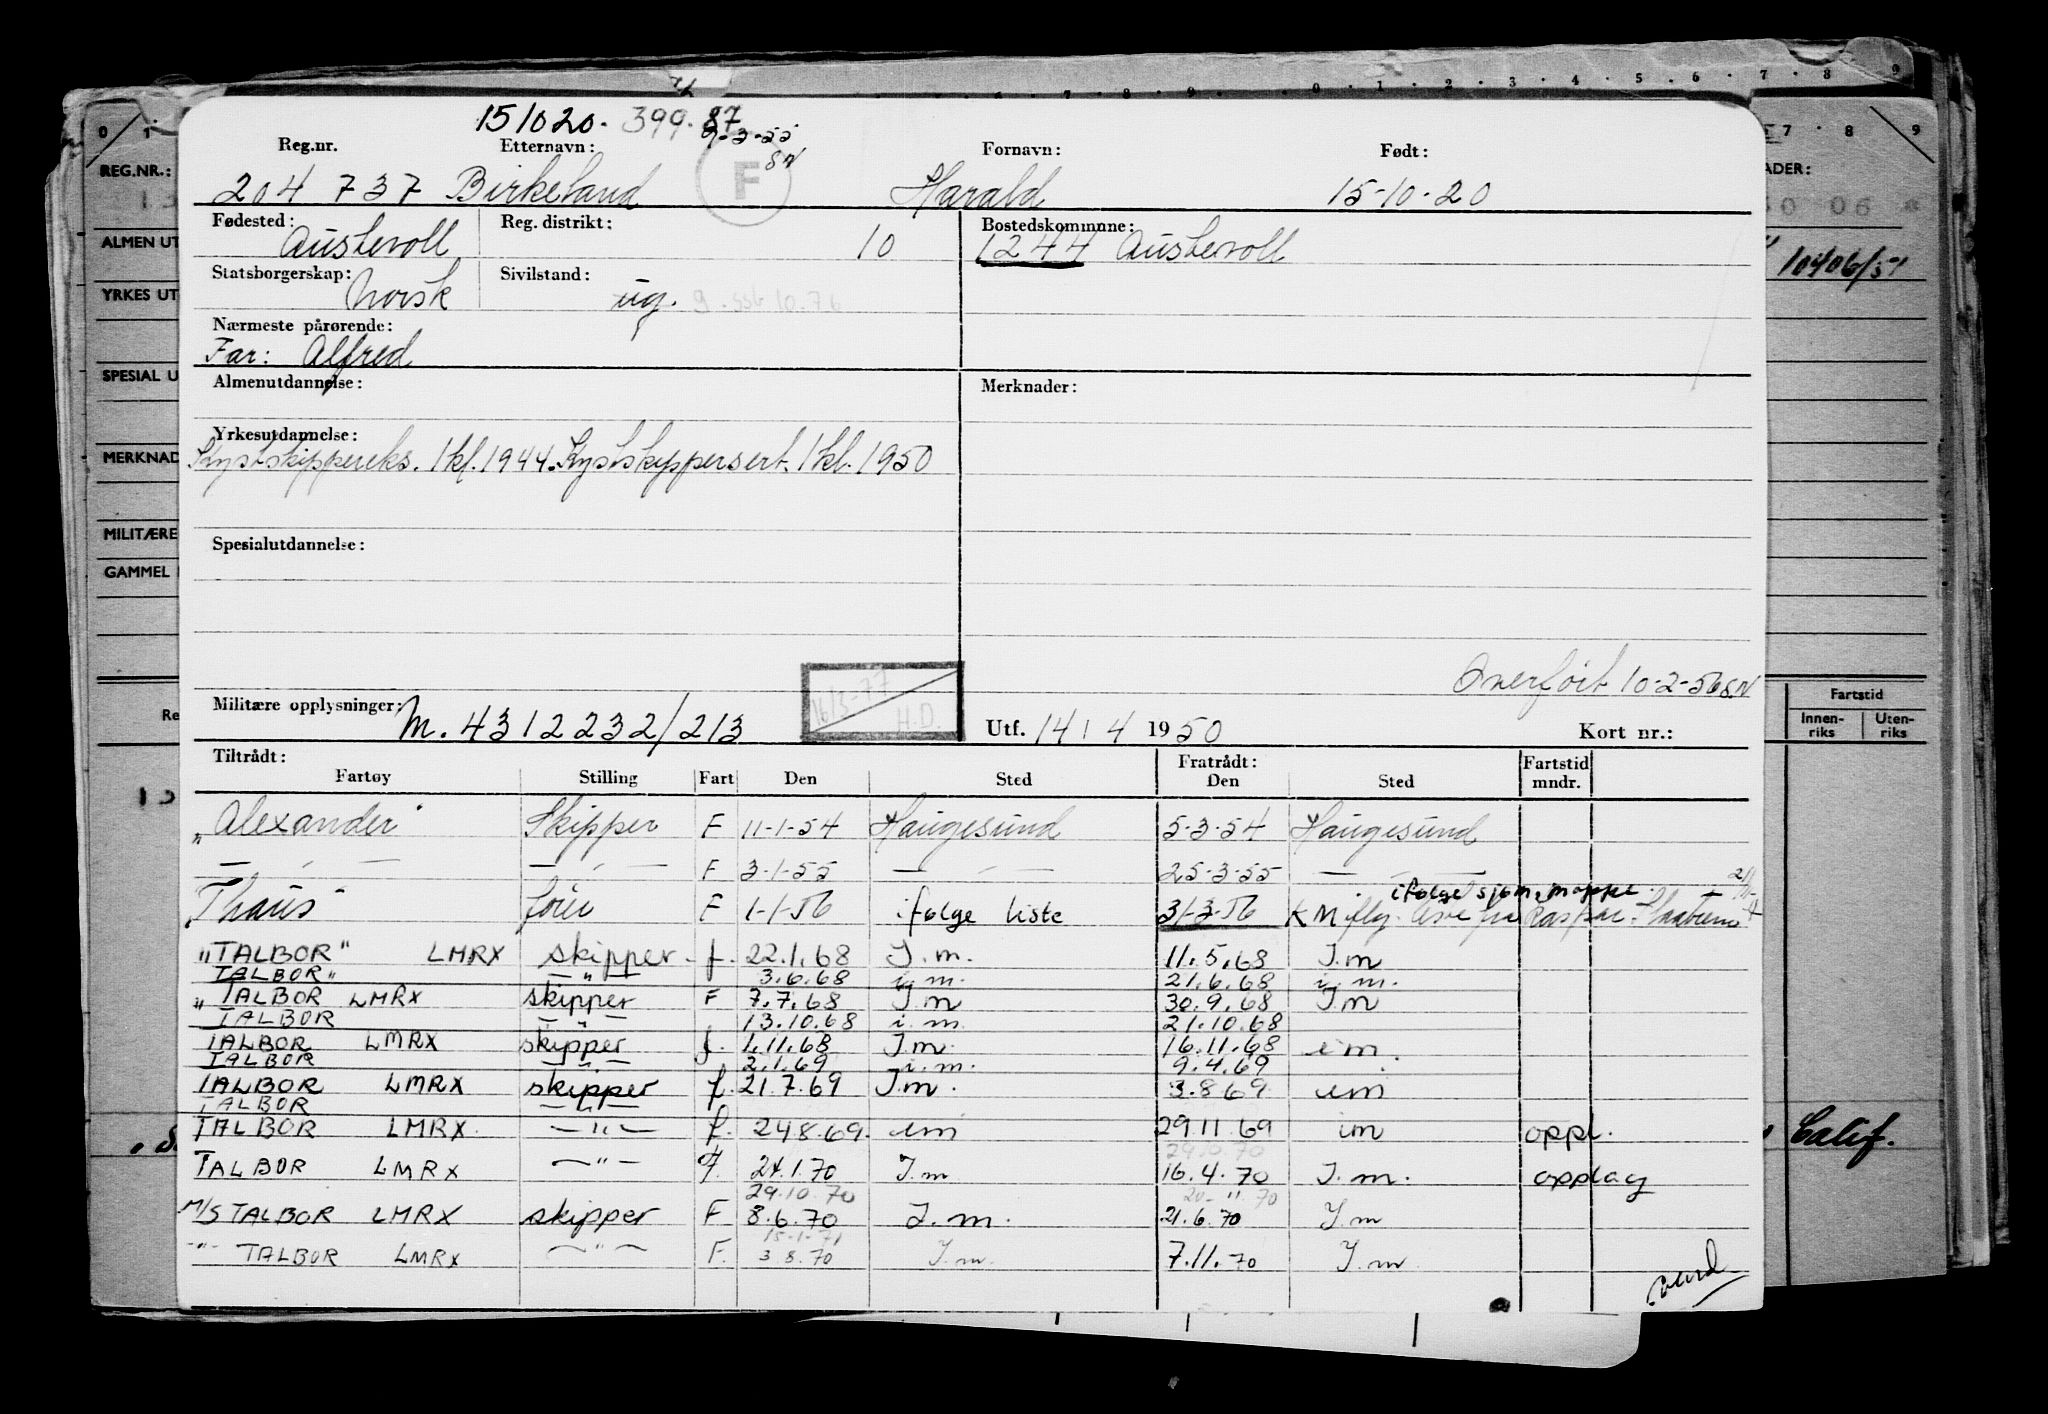 151020. 399. 87
9-3-55
SN
Reg.nr. Etternavn: Fornavn: Født:
F
204 737 Birkeland Harald 15-10-20
Fødested: Reg. distrikt: Bostedskommune:
Austevoll 10 1244 Austevoll
Statsborgerskap: Sivilstand:
Norsk ug. g. ssb 10.76
Nærmeste pårørende:
Far: Alfred
Almenutdannelse: Merknader:
Yrkesutdannelse:
Kystskippereks. 1kl. 1944. Kystskippersert. 1kl. 1950
Spesialutdannelse:
Overført 10-2-56 SN
16/3-77
H.D.
Militære opplysninger: M. 4312232/213 Utf. 14/4 1950 Kort nr.:
Tiltrådt: Fratrådt: Fartstid
Fartøy Stilling Fart Den Sted Den Sted mndr.
"Alexander" Skipper F 11-1-54 Haugesund 5-3-54 Haugesund
— " — — " — F 3-1-55 — " — 25-3-55 — " —
ifølge sjøm. mappe
"Thaus" fører F 1-1-56 ifølge liste 31-3-56
"TALBOR" LMRX skipper f. 22.1.68 I.m. 11.5.68 I.m
TALBOR" — " — 3.6.68 i.m. 21.6.68 i.m.
"TALBOR LMRX skipper F 7.7.68 I.m 30.9.68 I.m
TALBOR — " — 13.10.68 i.m. 21.10.68
TALBOR LMRX skipper f. 1.11.68 I.m. 16.11.68 im.
TALBOR — " — 2.1.69 i.m. 9.4.69
TALBOR LMRX skipper f. 21.7.69 I.m. 3.8.69 im
TALBOR — " —
TALBOR LMRX. — " — f. 24.8.69. im 29.11.69 im oppl.
29.10.70
TALBOR LMRX — " — F. 24.1.70 I.m 16.4.70 I.m. opplag
29.10.70 20-11.70
M/S TALBOR LMRX skipper F 8.6.70 I.m. 21.6.70 I.m
15-1-71
— " — TALBOR LMRX — " — F. 3.8.70 I.m. 7.11.70 I.m.
vend
REG.NR.:
ALMEN UT
YRKES UT
SPESIAL U
MERKNAD
MILITÆRE
GAMMEL
Re
ADER:
50 06
10406/51
Fartstid
Innen-riks Uten-riks
Calif.